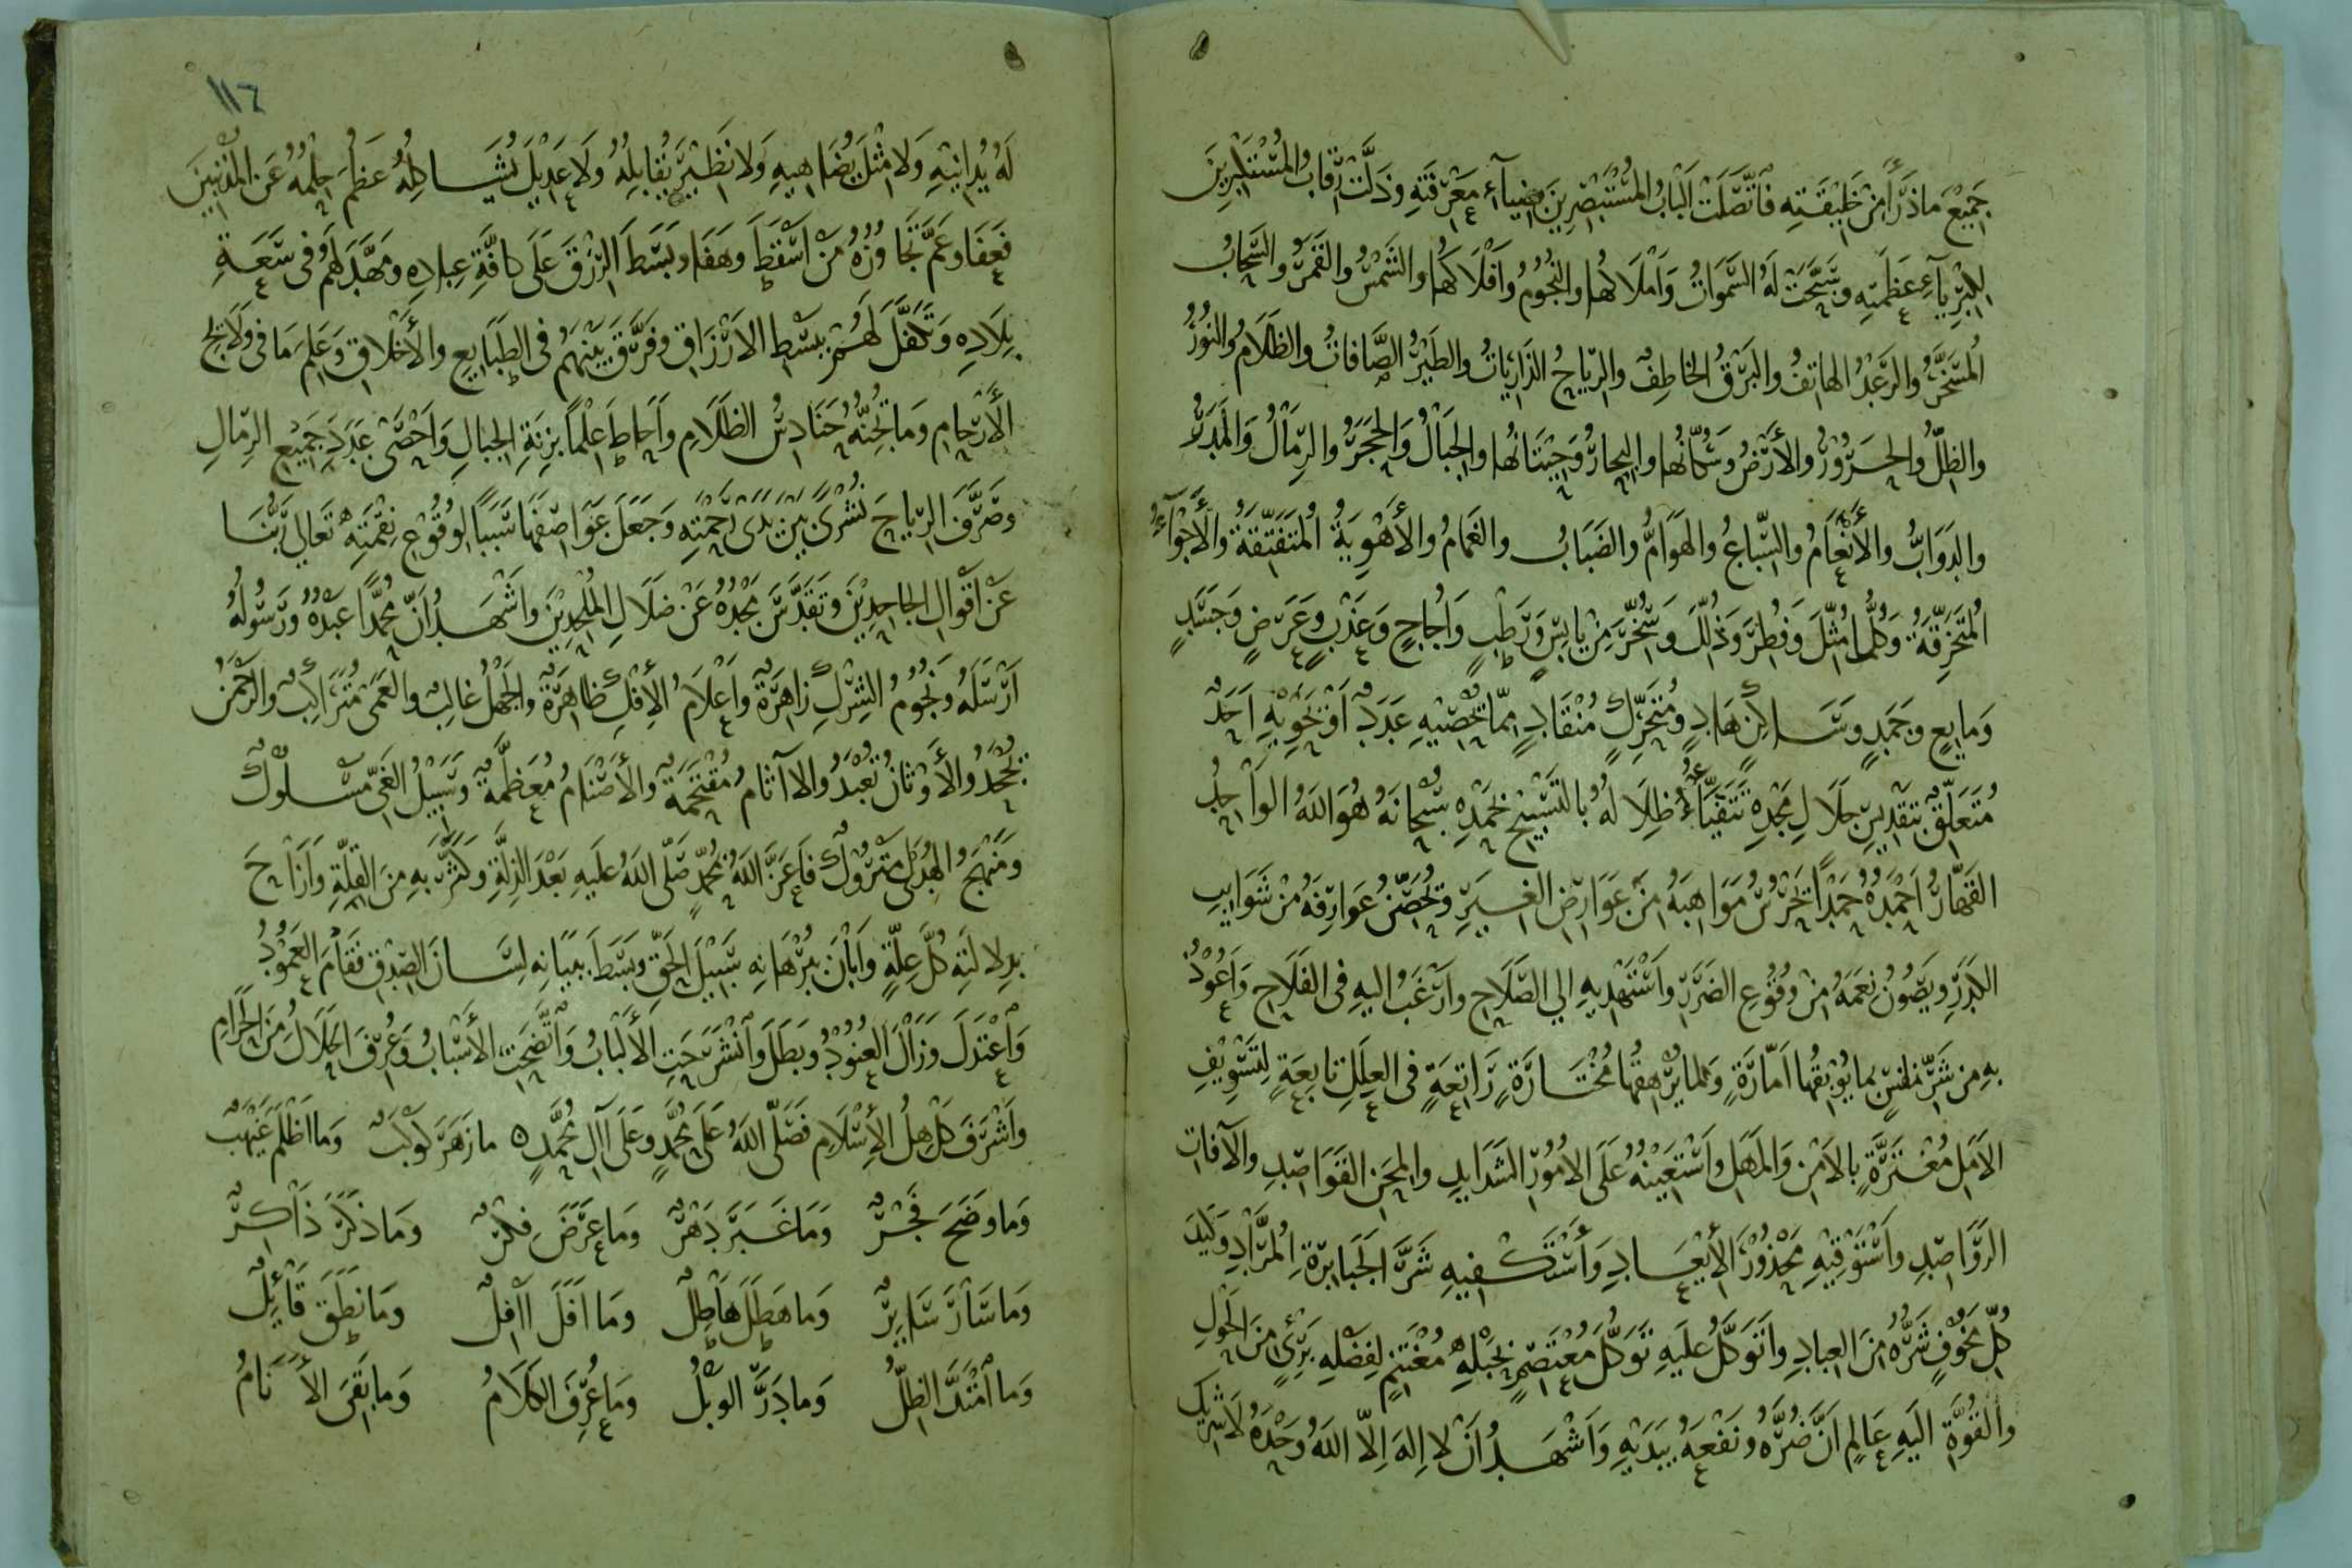 جَمِيْعَ مَا ذَرَأَ مِنْ خَلِيْقَتِهِ فَاتَّصَلَتْ اَلْبَابُ المُسْتَبْصِرِيْنَ بِضِيَآءِ مَعْرِفَتِهِ وَذَلَّتْ رِقَابُ المُسْتَكْبِرِيْنَ
لِكِبْرِيَآءِ عَظَمَتِهِ وَسَبَّحَتْ لَهُ السَّمَوَاتُ وَاَمْلَاكُهَا والنُّجُوْمُ وَاَفْلَاكُهَا والشَّمْسُ والقَمَرُ والسَّحَابُ
المُسَخَّرُ والرَّعْدُ الهَاتِفُ والبَرْقُ الخَاطِفُ والرِّيَاحُ الذَارِيَاتُ والطَيْرُ الصَّافاتُ والظَلَامُ والنُوْرُ
والظِلُّ والحَرُوْرُ والأَرْضُ وَسُكَّانُهَا والبِحَارُ وَحِيْتَانُهَا والجِبَالُ وَالحَجَرُ والرِمَالُ وَالمَدَرُ
والدَوَابُّ والأَنْعَامُ والسِّبَاعُ والهَوَامُّ والضَبَابُ والغَمَامُ والأَهْوِيَةُ المُتَفَتِّقَةُ والأَجْوَآءُ
المُتَخَرِّقَةُ وَكُلُّمَا مُثِّلَ وَفُطِرَ وَذُلِّلَ وَسُخِّرَ مِنْ يَابِسٍ وَرَطْبٍ وَاُجَاجٍ وَعَذْبٍ وعَرَضٍ وَجَسَدٍ
وَمَايِعٍ وَجَمَدٍ وَسَاكِنٍ هَادٍ وَمُتَحَرِّكٍ مُنْقَادٍ مِمّا يُحْصِيْهِ عَدَدٌ اَوْ يَحْوِيْهِ اَحَدٌ
مُتَعَلِّقٌ بِتَقْدِيْسِ جَلَالِ مَجْدِهِ تَتَفَيَّأُ ظِلَالهُ بِالتَسْبِيْحِ بِحَمْدِهِ سُبْحَانَهُ هُوَ اللهُ الوَاحِدُ
القَهَّارُ اَحْمَدُهُ حَمْدًا يَحْرُسُ مَوَاهِبَهُ مِنْ عَوَارِضِ الغِيَرِ وَيُحَصِّنُ عَوَارِفَهُ مِنْ شَوَايِبِ
الكَدَرِ ويَصُوْنُ نِعَمَهُ مِنْ وُقُوْعِ الضَرَرِ وَاَسْتَهْدِيهِ الي الصَّلَاحِ وَاَرْغَبُ اليهِ فى الفَلَاحِ وَاَعُوْذُ
بِهِ مِن شَرِّ نَفْسٍ بِمَا يُوْبِقُهَا اَمّارَةٍ وَلِمَا يُرْهِقُهَا مُخْتَارَةٍ رَاتِعَةٍ فى العِلَلِ تابِعَةٍ لِتَسْوِيْفِ
الاَمَلِ مُغْتَرَّةٍ بِالاَمْنِ وَالمَهَلِ وَاَسْتَعِيْنُهُ عَلَى الاُمُوْرِ الشَدَايِدِ والمِحَنِ القَوَاصِدِ والآفَاتِ
الرَوَاصِدِ وَاَسْتَوْقِيْهِ مَحْذُوْرَ الأَيْعَادِ وَأَسْتَكْفِيهِ شَرَّ الجَبَابِرَةِ المُرَّادِ وَكَيْدَ
كُلِّ مَخُوْفٍ شَرُّهُ مِنَ العِبَادِ وَاَتَوَكَّلُ عَلَيهِ تَوَكُّلَ مُعْتَصِمٍ بِحَبْلِهِ مُغْتَنِمٍ لِفَضْلِهِ بَرِئٍ مِنَ الحَوْلِ
والقُوَّةِ اليَهِ عَالِمٍ اَنَّ ضُرَّهُ ونَفْعَهُ بِيَدَيْهِ وَاَشْهَدُ اَنْ لا اِلهَ اِلّا اللهُ وَحْدَهُ لَا شَرِيْكَ
١١٦
لَهُ يُدَانِيْهِ وَلا مِثْلَ يُضَاهِيهِ وَلا نَظِيْرَ يُقابِلُهُ وَلَا عَدِيْلَ يُشَاكِلُهُ عَظُمَ حِلْمُهُ عَنِ المُذْنِبِيْنَ
فَعَفَا وعَمَّ تَجَاوُزُهُ مَنْ اَسْقَطَ وَهَفَا وبَسَطَ الرِزْقَ عَلَى كافَّةِ عِبَادِهِ وَمَهَّدَ لَهُمْ فى سَعَةِ
بِلَادِهِ وَتَكَفَّلَ لَهُمْ بِبَسْطِ الارْزَاقِ وفَرَّقَ بَيْنَهُم فى الطِبَايِعِ والأَخْلاقِ وَعَلِمَ مَا فى وَلَايِجِ
الأَرْحَامِ وَمَا تُجِنُّهُ حَنَادِسُ الظَلَامِ واَحَاطَ عِلْمًا بِزِنَةِ الجِبَالِ وَاَحْصَى عَدَدَ جَمِيْعِ الرِمَالِ
وصَرَّفَ الرِيَاحَ نُشْرًى بَيْنَ يَدَىْ رَحْمَتِهِ وَجَعَلَ عَوَاصِفَهَا سَبَبًا لوُقُوْعِ نِقْمَتِهِ تَعَالي رَبُّنَا
عَنْ اَقْوَالِ الجَاحِدِيْنَ وتَقَدَّسَ مَجْدُهُ عَنْ ضَلَالِ المُلْحِدِيْنَ واَشْهَدُ اَنَّ مُحَمَّدًا عَبْدُهُ وَرَسُوْلُهُ
اَرْسَلَهُ وَنُجُوْمُ الشِرْكِ زَاهِرَةٌ واَعْلَامُ الأِفْكِ ظاهِرَةٌ والجَهْلُ غَالِبٌ والعَمَى مُتَرَاكِبٌ والرَحْمَنُ
يُجْحَدُ والأَوْثَانُ تُعْبَدُ والآثَامُ مُقْتَحَمَةٌ والأَصْنَامُ مُعَظَّمَةٌ وَسَبِيْلُ الغَىِّ مَسْلُوْكٌ
ومَنْهَجُ الهُدَى مَتْرُوْكٌ فَاَعَزَّ اللهُ بِمُحَمَّدٍ صَلّى اللهُ عَلَيهِ بَعْدَ الذِلَّةِ وَكَثَّرَ بِهِ مِنَ القِلَّةِ وَاَزَاحَ
بِدِلالَتِهِ كُلَّ عِلَّةٍ وَاَبَانَ بِبُرْهَانِهِ سَبِيْلَ الحَقِّ وبَسَطَ بِبَيَانِهِ لِسَانَ الصِدْقِ فَقَامَ العَمُوْدُ
وَاعْتَدَلَ وَزَالَ العُنُوْدُ وبَطَلَ وانْشَرَحَتِ الأَلْبَابُ وَاتَّضَحَتِ الأَسْبَابُ وَعُرِفَ الحَلَالُ مِنَ الحَرَامِ
وَاَشْرَقَ كَاهِلُ الأِسْلَامِ فَصَلّى اللهُ عَلَى مُحَمَّدٍ وعَلَى آلِ مُحَمَّدٍ ما زَهَرَ كَوكَبٌ وَمَا اَظْلَمَ غَيْهَبٌ
وَمَا وَضَحَ فَجْرٌ وَمَا غَبَرَ دَهْرٌ وَمَا عَرَضَ فِكْرٌ وَمَا ذَكَرَ ذَاكِرٌ
وَمَا سَارَ سَايِرٌ وَمَا هَطَلَ هَاطِلٌ وَمَا اَفَلَ اآفِلٌ وَمَا نَطَقَ قَائِلٌ
وَمَا امْتَدَّ الظِلُّ وَمَا دَرَّ الوَبْلُ وَمَا عُرِفَ الكَلَامُ وَمَا بَقِىَ الأَنَامُ